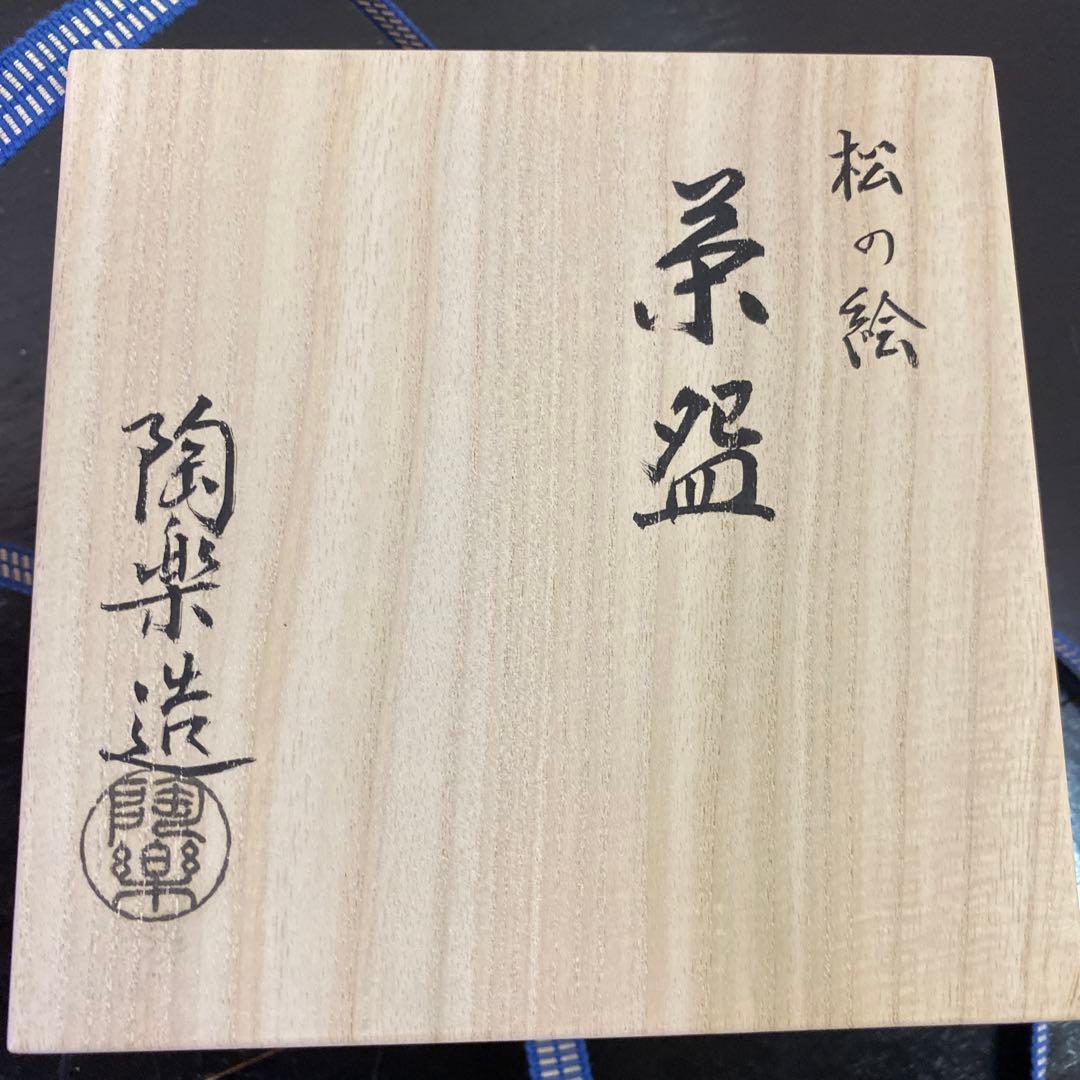 松の絵
茶盌
陶楽造
陶樂